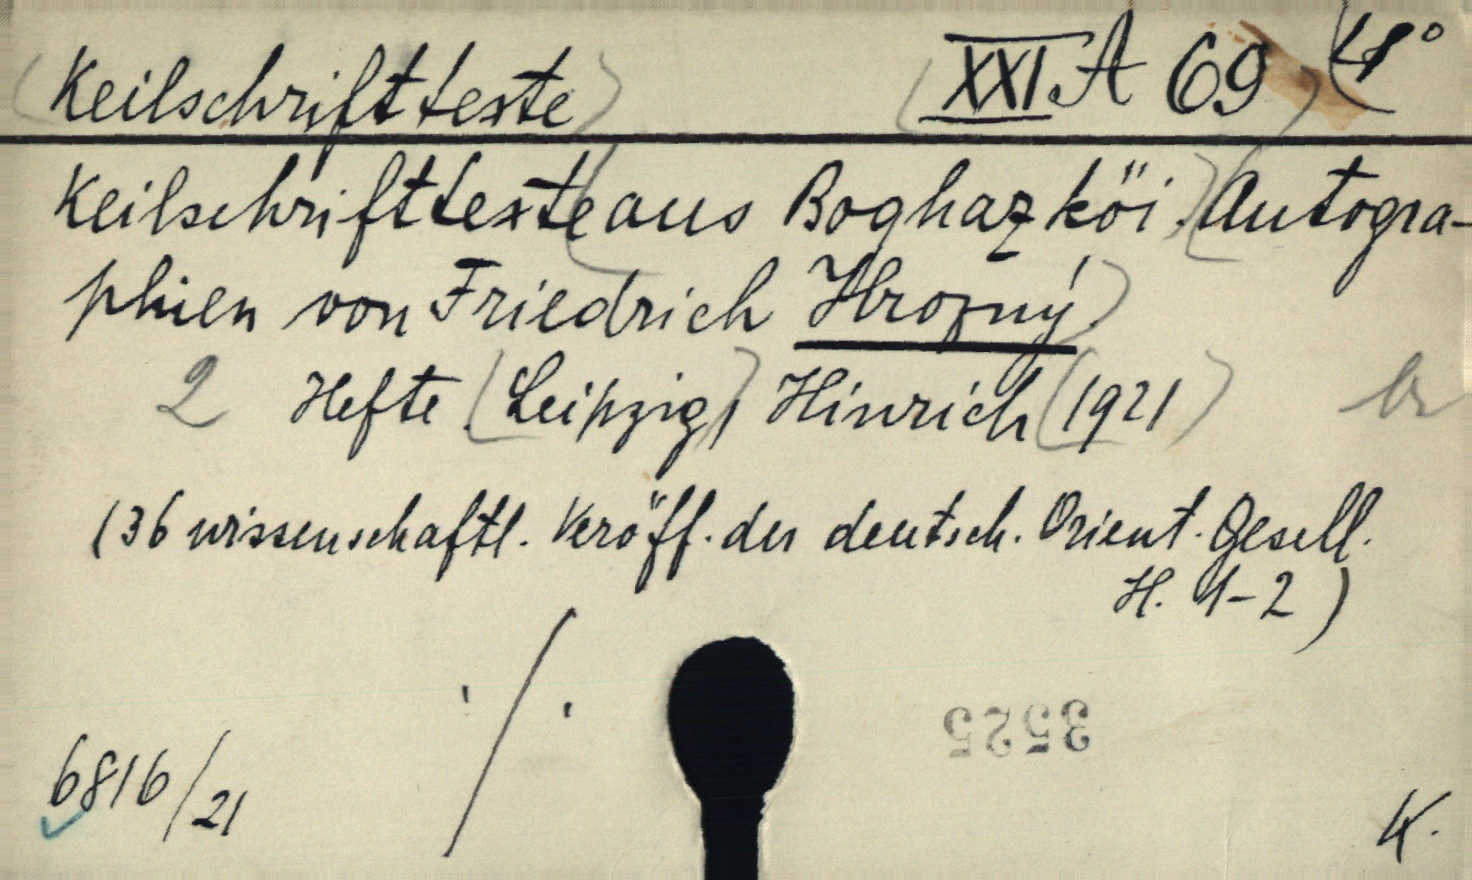 (Keilschrifttexte) (XXI. A 69) (4°
Keilschrifttexte (aus Boghazköi.) (Autogra-
phien von Friedrich Hrozný)
2 Hefte (Leipzig), Hinrich (1921)
(36 wissenschaftl. Veröff. der deutsch. Orient. Gesell.
H. 1-2)
./.
3525
6816/21
K.